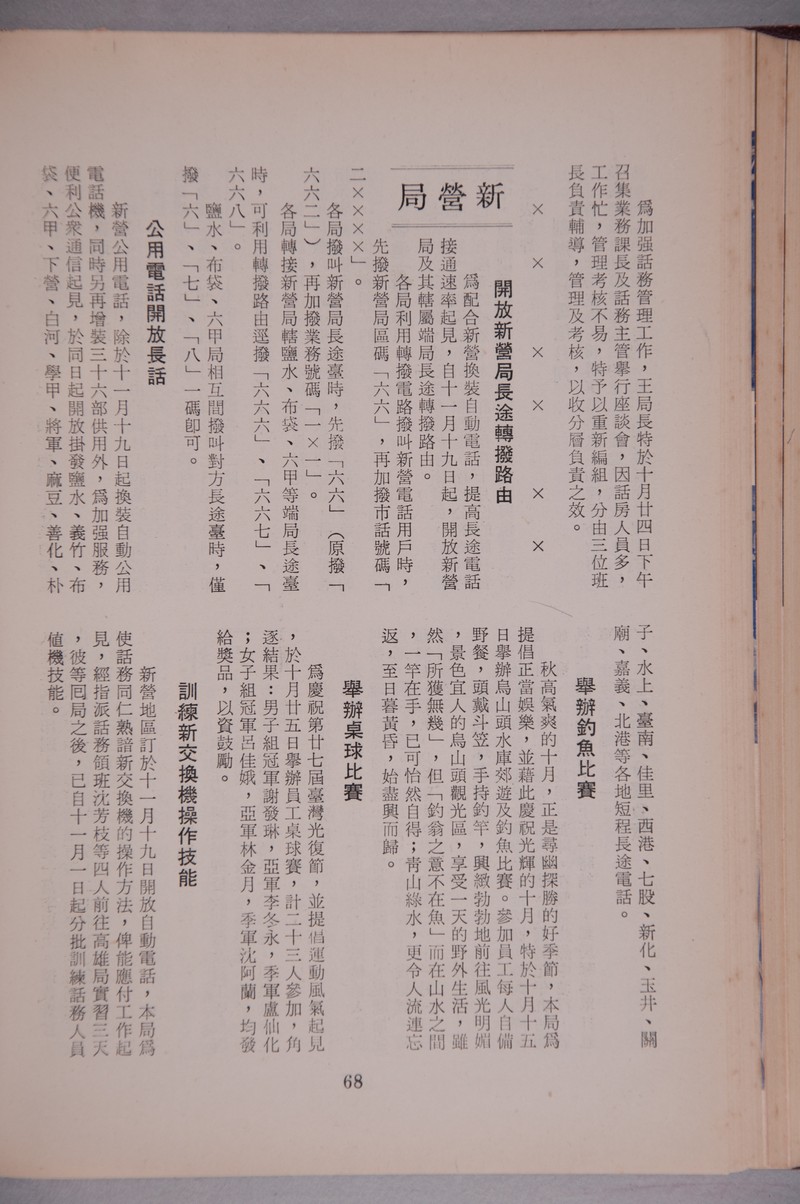 爲加强話務管理工作，王局長特於十月廿四日下午
召集業務課長及話務主管舉行座談會，因話房人員多，
工作忙，管理考核不易，特予以重新編組，分由三位班
長負責輔導，管理及考核，以收分層負責之效。
×　×　×　×　×　×
新營局
開放新營局長途轉撥路由
爲配合新營換裝自動電話，提高長途電話
接通速率起見，自十一月十九日起，開放新營
局及其轄屬端局長途轉撥路由。
各局利用轉撥電路撥叫新營電話用戶時，
先撥新營局區碼「六六」，再加撥市話號碼「
二×××」。
各局撥叫新營局長途臺時，先撥「六六」（原撥「
六六二」），再加撥業務號碼「一×一」。
各局轉接新營局轄鹽水、布袋、六甲等端局長途臺
時，可利用轉撥路由逕撥「六六六」、「六六七」、「
六六八」。
鹽水、布袋、六甲局相互間撥叫對方長途臺時，僅
撥「六」、「七」、「八」一碼卽可。
公用電話開放長話
新營公用電話，除於十一月十九日起換裝自動公用
電話機，同時另再增裝三十六部供用外，爲加强服務，
便利公衆通信起見，於同日起開放掛發鹽水、義竹、布
袋、六甲、下營、白河、學甲、將軍、麻豆、善化、朴
子、水上、臺南、佳里、西港、七股、新化、玉井、關
廟、嘉義、北港等各地短程長途電話。
舉辦釣魚比賽
秋高氣爽的十月，正是尋幽探勝的好季節，本局爲
提倡正當娛樂，並藉此慶祝光輝的十月，特於十月十五
日舉辦烏山頭水庫郊遊及釣魚比賽。參加員工每人自備
野餐，頭戴斗笠，手持釣竿，興緻勃勃地前往風光明媚
，景色宜人的烏山頭觀光區，享受一天的野外生活，雖
然「所獲無幾」，但「釣翁之意不在魚」而在山水之間
，一竿在手，已可怡然自得；靑山綠水，更令人流連忘
返，至日暮黃昏，始盡興而歸。
舉辦桌球比賽
爲慶祝第廿七屆臺灣光復節，並提倡運動風氣起見
，於十月廿五日舉辦員工桌球賽，計二十三人參加，角
逐結果：男子組冠軍謝發琳，亞軍李冬永，季軍盧仙化
；女子組冠軍呂佳娥，亞軍林金月，季軍沈阿蘭，均發
給獎品，以資鼓勵。
訓練新交換機操作技能
新營地區訂於十一月十九日開放自動電話，本局爲
使話務同仁熟諳新交換機的操作方法，俾能應付工作起
見，經指派話務領班沈芳枝等四人前往高雄局實習三天
，彼等囘局之後，已自十一月一日起分批訓練話務人員
値機技能。
68